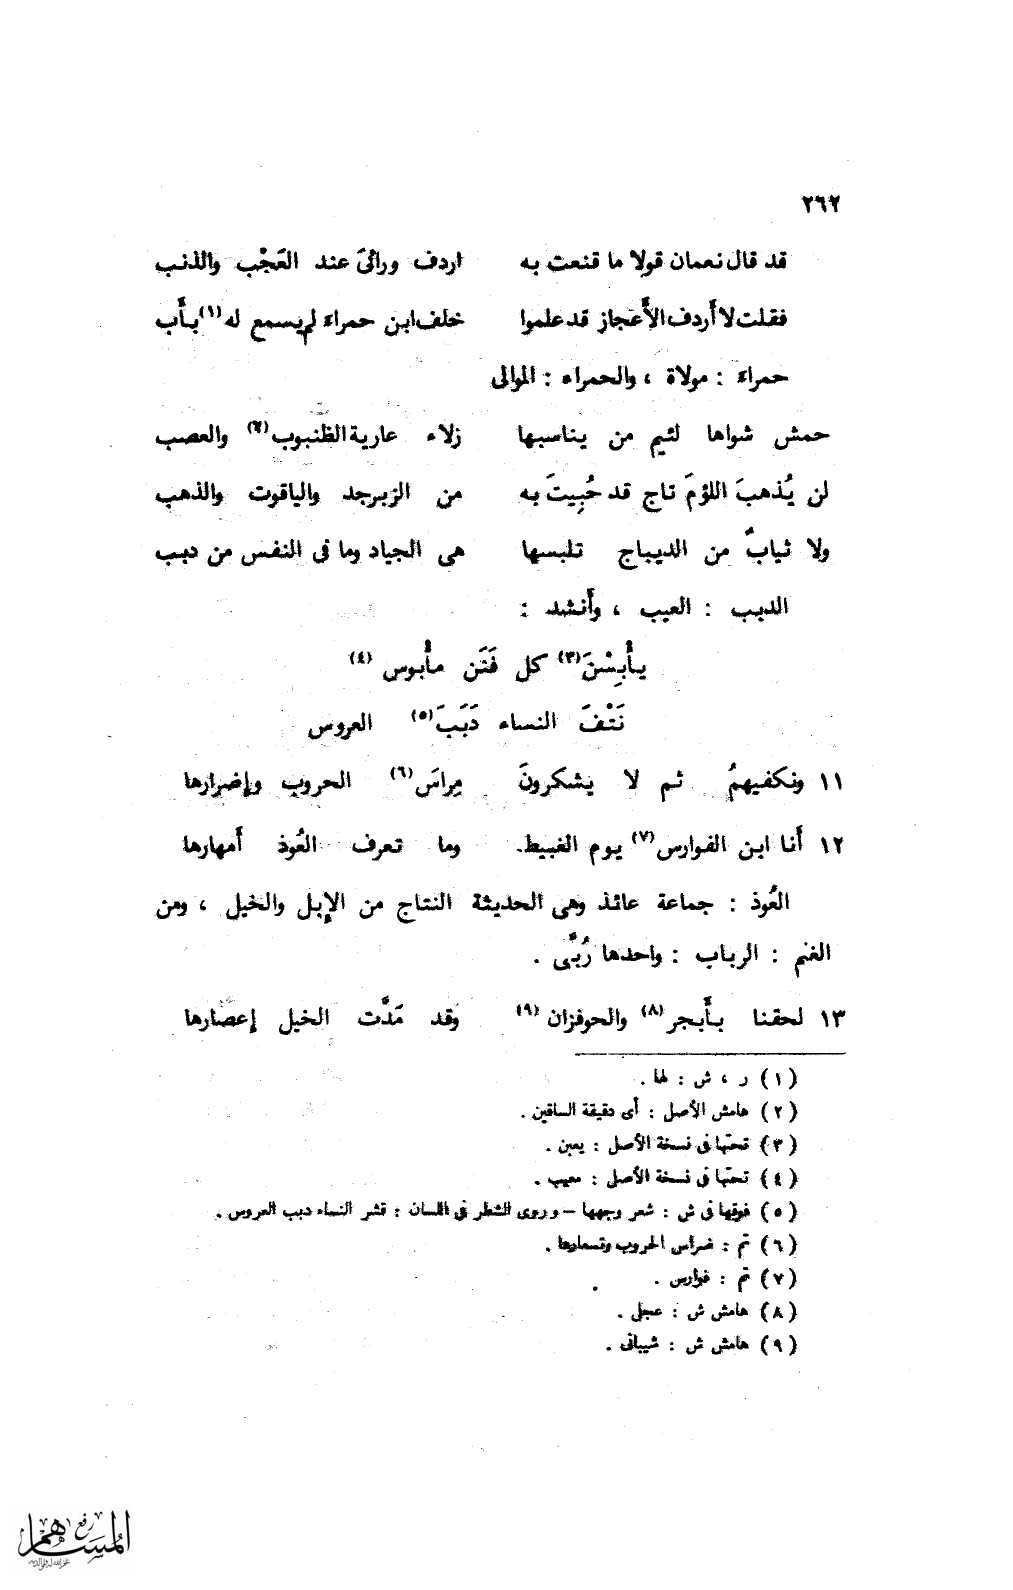 ٢٦٢
قد قال نعمان قولا ما قنعت به اردف ورائىَ عند العَجْب والذنب
فقلت لا أردف الأعجاز قد علموا خلف ابن حمراءَ لم يسمع له (١) بأب
حمراءَ : مولاة ، والحمراء : الموالى
حمش شواها لئيم من يناسبها زلاء عارية الظنبوب (٢) والعصب
لن يُذهبَ اللؤمَ تاج قد حُبِيتَ به من الزبرجد والياقوت والذهب
ولا ثيابٌ من الديباج تلبسها هى الجياد وما فى النفس من دبب
الدبب : العيب ، وأنشد :
يأْبِسْنَ (٣) كل فَتَن مأْبوس (٤)
نَتْفَ النساء دَبَبَ (٥) العروس
١١ ونكفيهمُ ثم لا يشكرونَ مِراسَ (٦) الحروب وإضرارها
١٢ أنا ابن الفوارس (٧) يوم الغبيط. وما تعرف العُوذ أمهارها
العُوذ : جماعة عائذ وهى الحديثة النتاج من الإبل والخيل ، ومن
الغنم : الرباب : واحدها رُبَّى .
١٣ لحقنا بأَبجر (٨) والحوفزان (٩) وقد مَدَّت الخيل إعصارها
(١) ر ، ش : لها .
(٢) هامش الأصل : أى دقيقة الساقين .
(٣) تحتها فى نسخة الأصل : يعبن .
(٤) تحتها فى نسخة الأصل : معيب .
(٥) فوقها فى ش : شعر وجهها – وروى الشطر فى اللسان : قشر النساء دبب العروس .
(٦) تم : ضراس الحروب وتسعارها .
(٧) تم : فوارس .
(٨) هامش ش : عجلى .
(٩) هامش ش : شيبانى .
رفع
المساهم